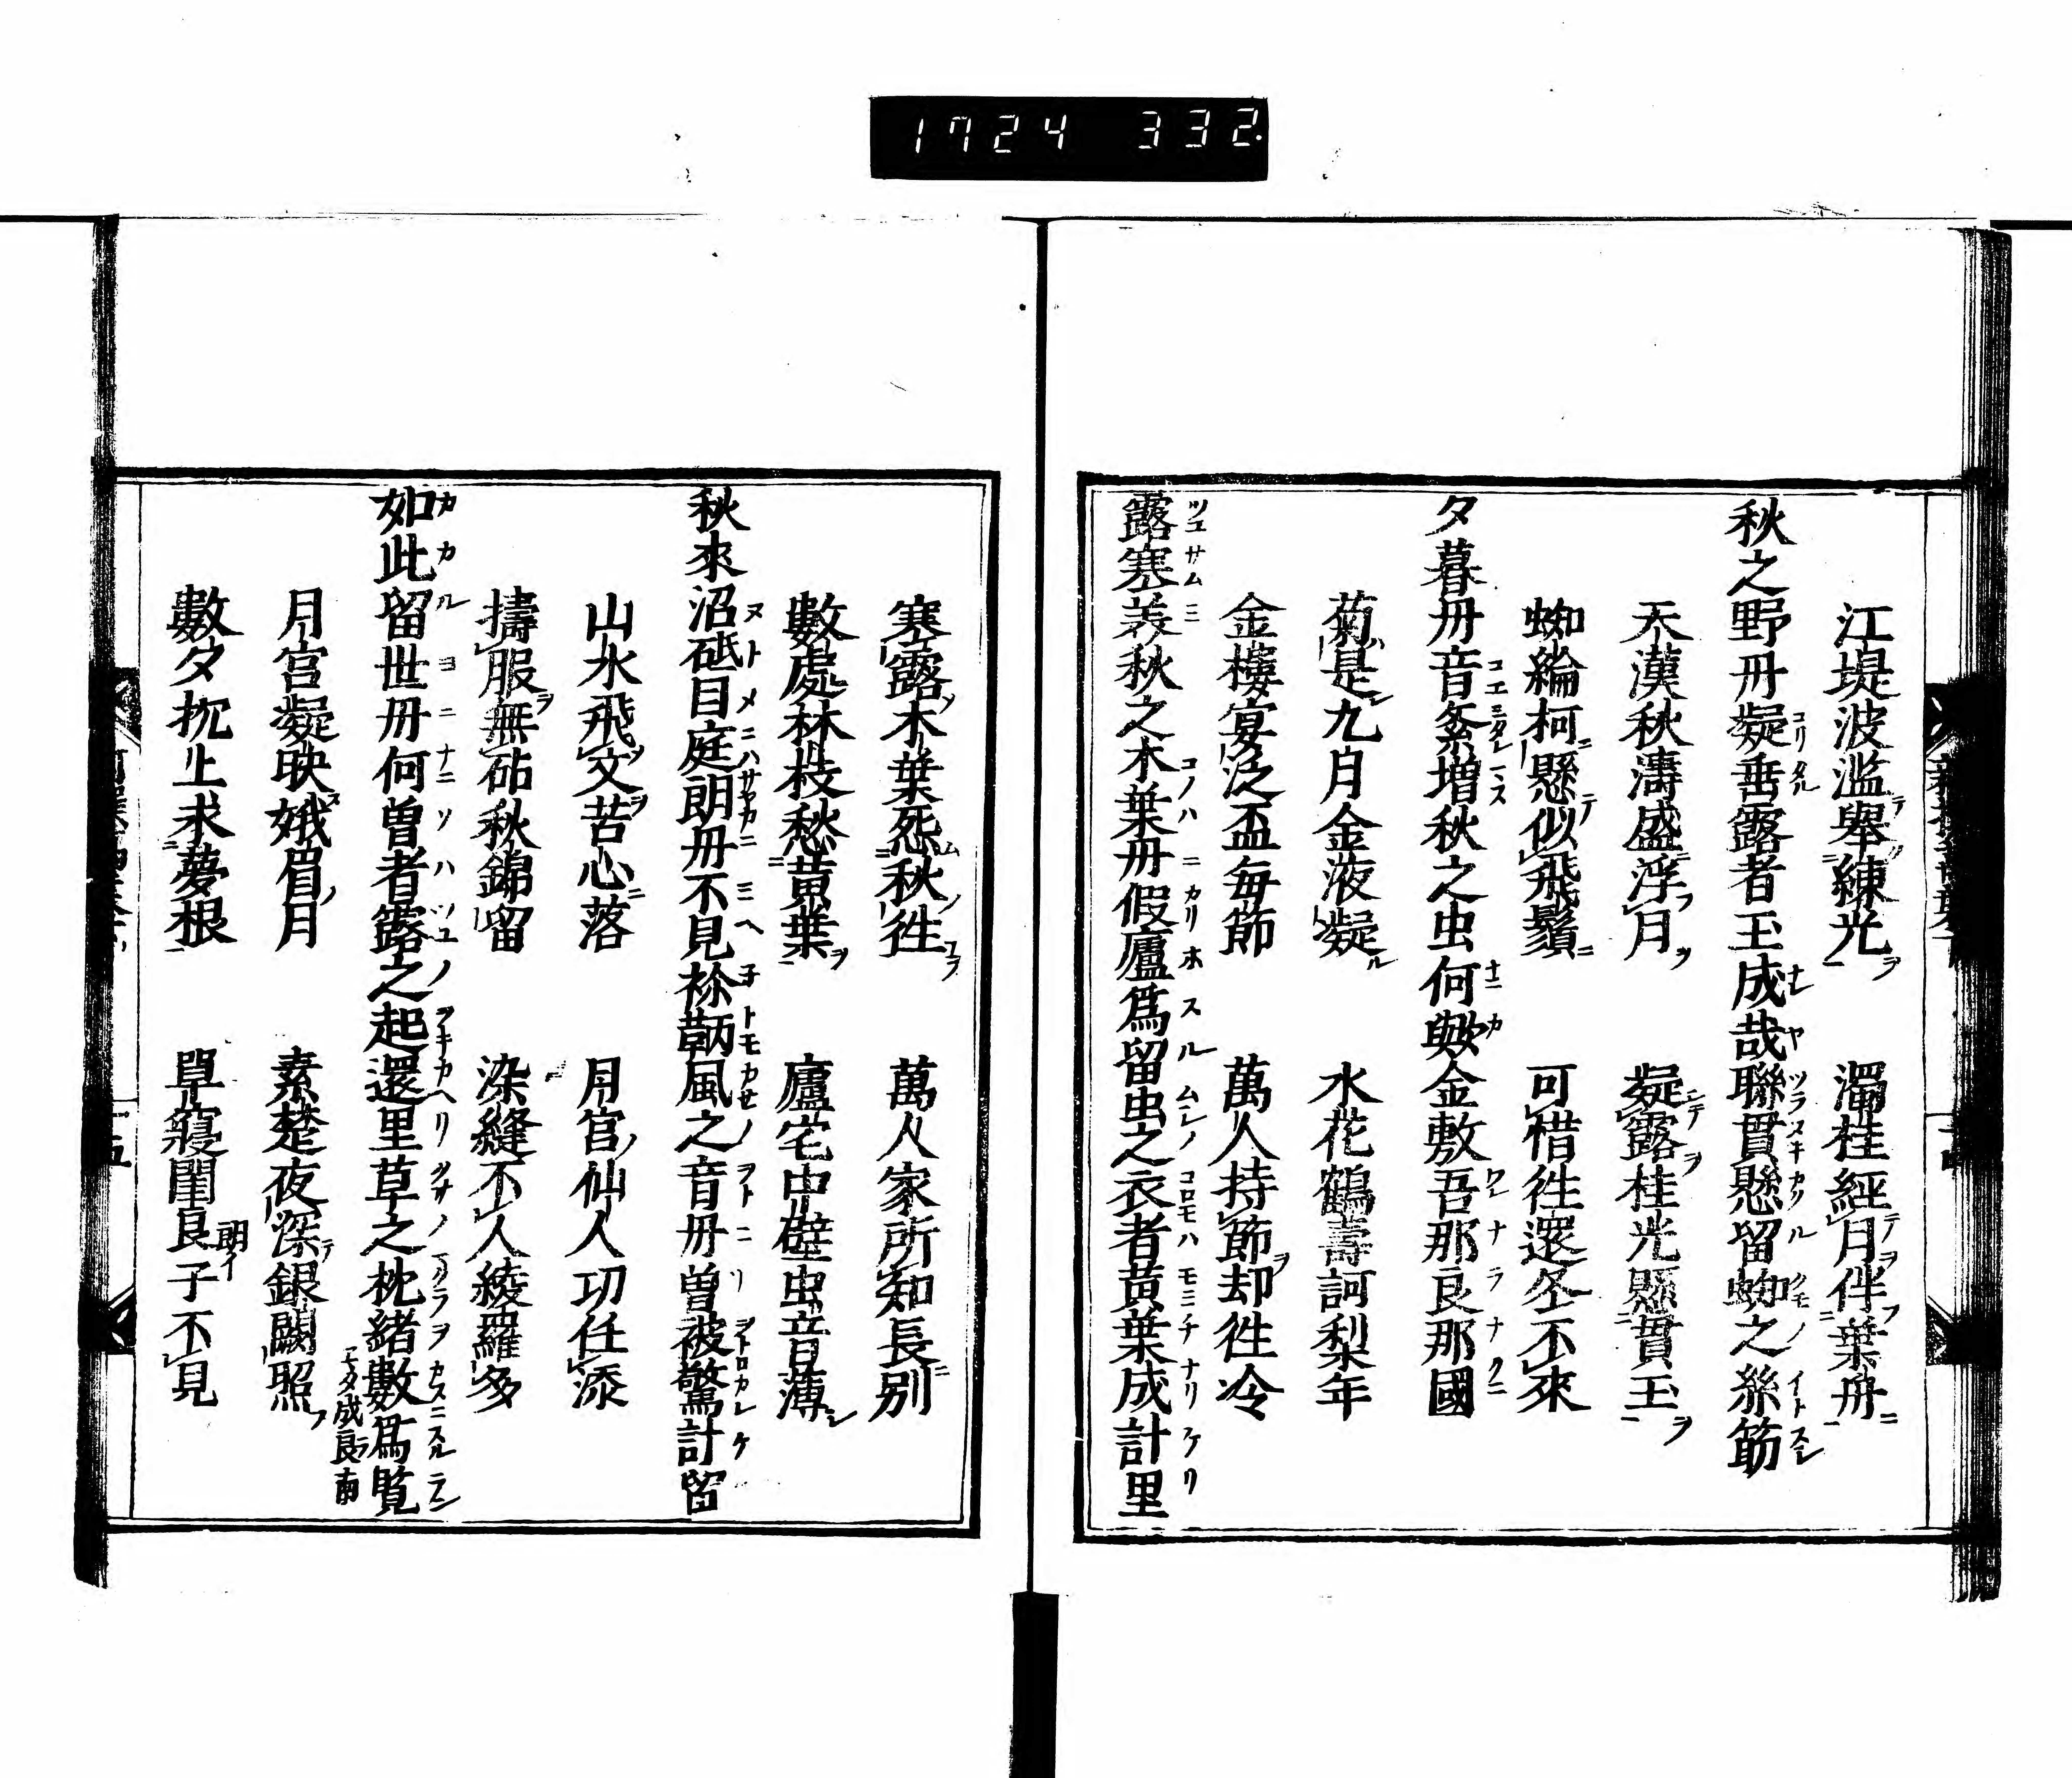 1724 332.
江堤波濫舉練光　濁桂經月伴葉舟
秋之野丹凝垂露者玉成哉聯貫懸留蜘之絲筋
天漢秋濤盛浮月　凝露桂光懸貫玉
蜘綸柯懸似飛鬚　可惜徃還冬不來
夕暮丹音絫増秋之虫何歟金敷吾那良那國
菊是九月金液凝　水花鶴壽訶梨年
金樓宴泛盃毎節　萬人持節却徃冷
露塞美秋之木葉丹假廬爲留虫之衣者黄葉成計里
塞露木葉怨秋徃　萬人家所知長別
數處林枝愁黄葉　廬宅中壁虫音薄
秋來沼砥目庭朗丹不見袮鞆風之音丹曽被驚計留
山水飛文苦心落　月宮仙人功任添
擣服無砧秋錦留　染縫不人綾羅多
如此留世丹何曽者露之起還里草之枕緒數爲覧
モタ成良南
月宮凝映娥眉月　素楚夜深銀闕照
數夕枕上求夢根　單寢閨良子不見
明イ